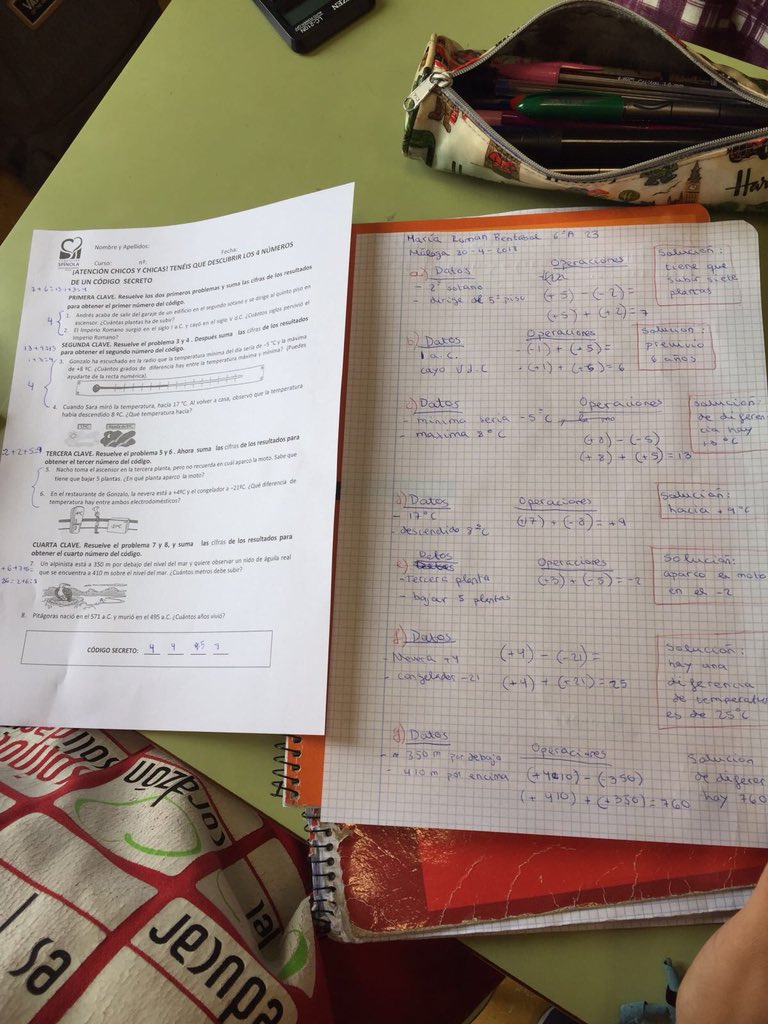 SPÍNOLA
Nombre y Apellidos:
Fecha:
Curso: nº:
¡ATENCIÓN CHICOS Y CHICAS! TENÉIS QUE DESCUBRIR LOS 4 NÚMEROS
DE UN CÓDIGO SECRETO
PRIMERA CLAVE. Resuelve los dos primeros problemas y suma las cifras de los resultados
para obtener el primer número del código.
4
1. Andrés acaba de salir del garaje de un edificio en el segundo sótano y se dirige al quinto piso en
ascensor. ¿Cuántas plantas ha de subir?
2. El Imperio Romano surgió en el siglo I a.C. y cayó en el siglo V d.C. ¿Cuántos siglos pervivió el
Imperio Romano?
SEGUNDA CLAVE. Resuelve el problema 3 y 4. Después suma las cifras de los resultados
para obtener el segundo número del código.
4
3. Gonzalo ha escuchado en la radio que la temperatura mínima del día sería de -5 ºC y la máxima
de +8 ºC. ¿Cuántos grados de diferencia hay entre la temperatura máxima y mínima? (Puedes
ayudarte de la recta numérica).
4. Cuando Sara miró la temperatura, hacía 17 ºC. Al volver a casa, observo que la temperatura
había descendido 8 ºC. ¿Qué temperatura hacía?
TERCERA CLAVE. Resuelve el problema 5 y 6. Ahora suma las cifras de los resultados para
obtener el tercer número del código.
5. Nacho toma el ascensor en la tercera planta, pero no recuerda en cuál aparco la moto. Sabe que
tiene que bajar 5 plantas. ¿En qué planta aparco la moto?
6. En el restaurante de Gonzalo, la nevera está a +4ºC y el congelador a –21ºC. ¿Qué diferencia de
temperatura hay entre ambos electrodomésticos?
CUARTA CLAVE. Resuelve el problema 7 y 8, y suma las cifras de los resultados para
obtener el cuarto número del código.
7. Un alpinista está a 350 m por debajo del nivel del mar y quiere observar un nido de águila real
que se encuentra a 410 m sobre el nivel del mar. ¿Cuántos metros debe subir?
8. Pitágoras nació en el 571 a.C. y murió en el 495 a.C. ¿Cuántos años vivió?
CÓDIGO SECRETO: 4 4
María Román Bentabal 6ºA 23
Málaga 30-4-2018
a) Datos
- 2º sotano
- dirige al 5º piso
Operaciones
(+5) - (-2) =
(+5) + (+2) = 7
Solución:
tiene que
subir siete
plantas
b) Datos
1 a.c.
cayo V d.C
Operaciones
(+1) + (+5) = 6
Solución:
6 años
c) Datos
- minima seria -5ºC
- maxima 8ºC
Operaciones
(+8) - (-5)
(+8) + (+5) = 13
Solución:
de diferen
cia hay
d) Datos
- 17ºC
- descendido 8ºC
Operaciones
(+17) + (-8) = +9
Solución:
hacia +9ºC
e) Datos
- Tercera planta
- bajar 5 plantas
Operaciones
(+3) + (-5) = -2
Solución:
aparco la moto
en el -2
f) Datos
- Nevera +4
- congelador -21
(+4) - (-21) =
(+4) + (+21) = 25
Solución:
hay una
diferencia
de temperatura
es de 25ºC
g) Datos
- 350 m por debajo
- 410 m por encima
Operaciones
(+410) - (-350)
(+410) + (+350) = 760
Solución
hay 760
corazón
educar
es
Har